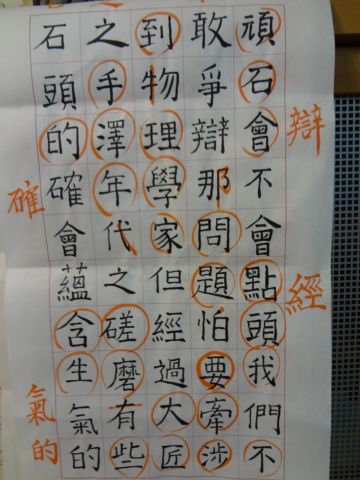 頑石會不會點頭我們不
敢爭辯那問題怕要牽涉
到物理學家但經過大匠
之手澤年代之磋磨有些
石頭的確會蘊含生氣的
辯
經
確
氣
的